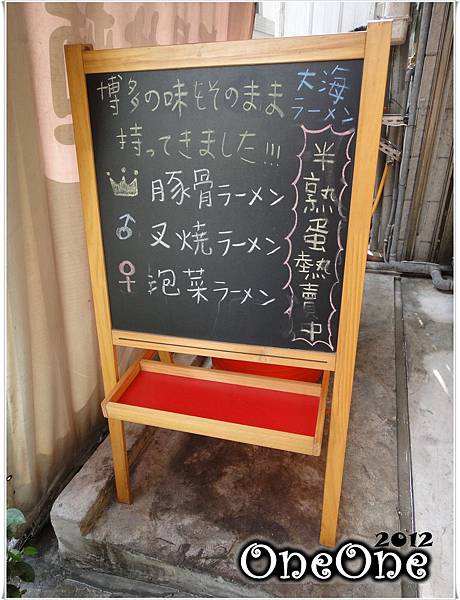 博多の味をそのまま
持ってきました!!!
大海
ラーメン
豚骨ラーメン
叉焼ラーメン
泡菜ラーメン
半熟蛋熱賣中
2012
OneOne